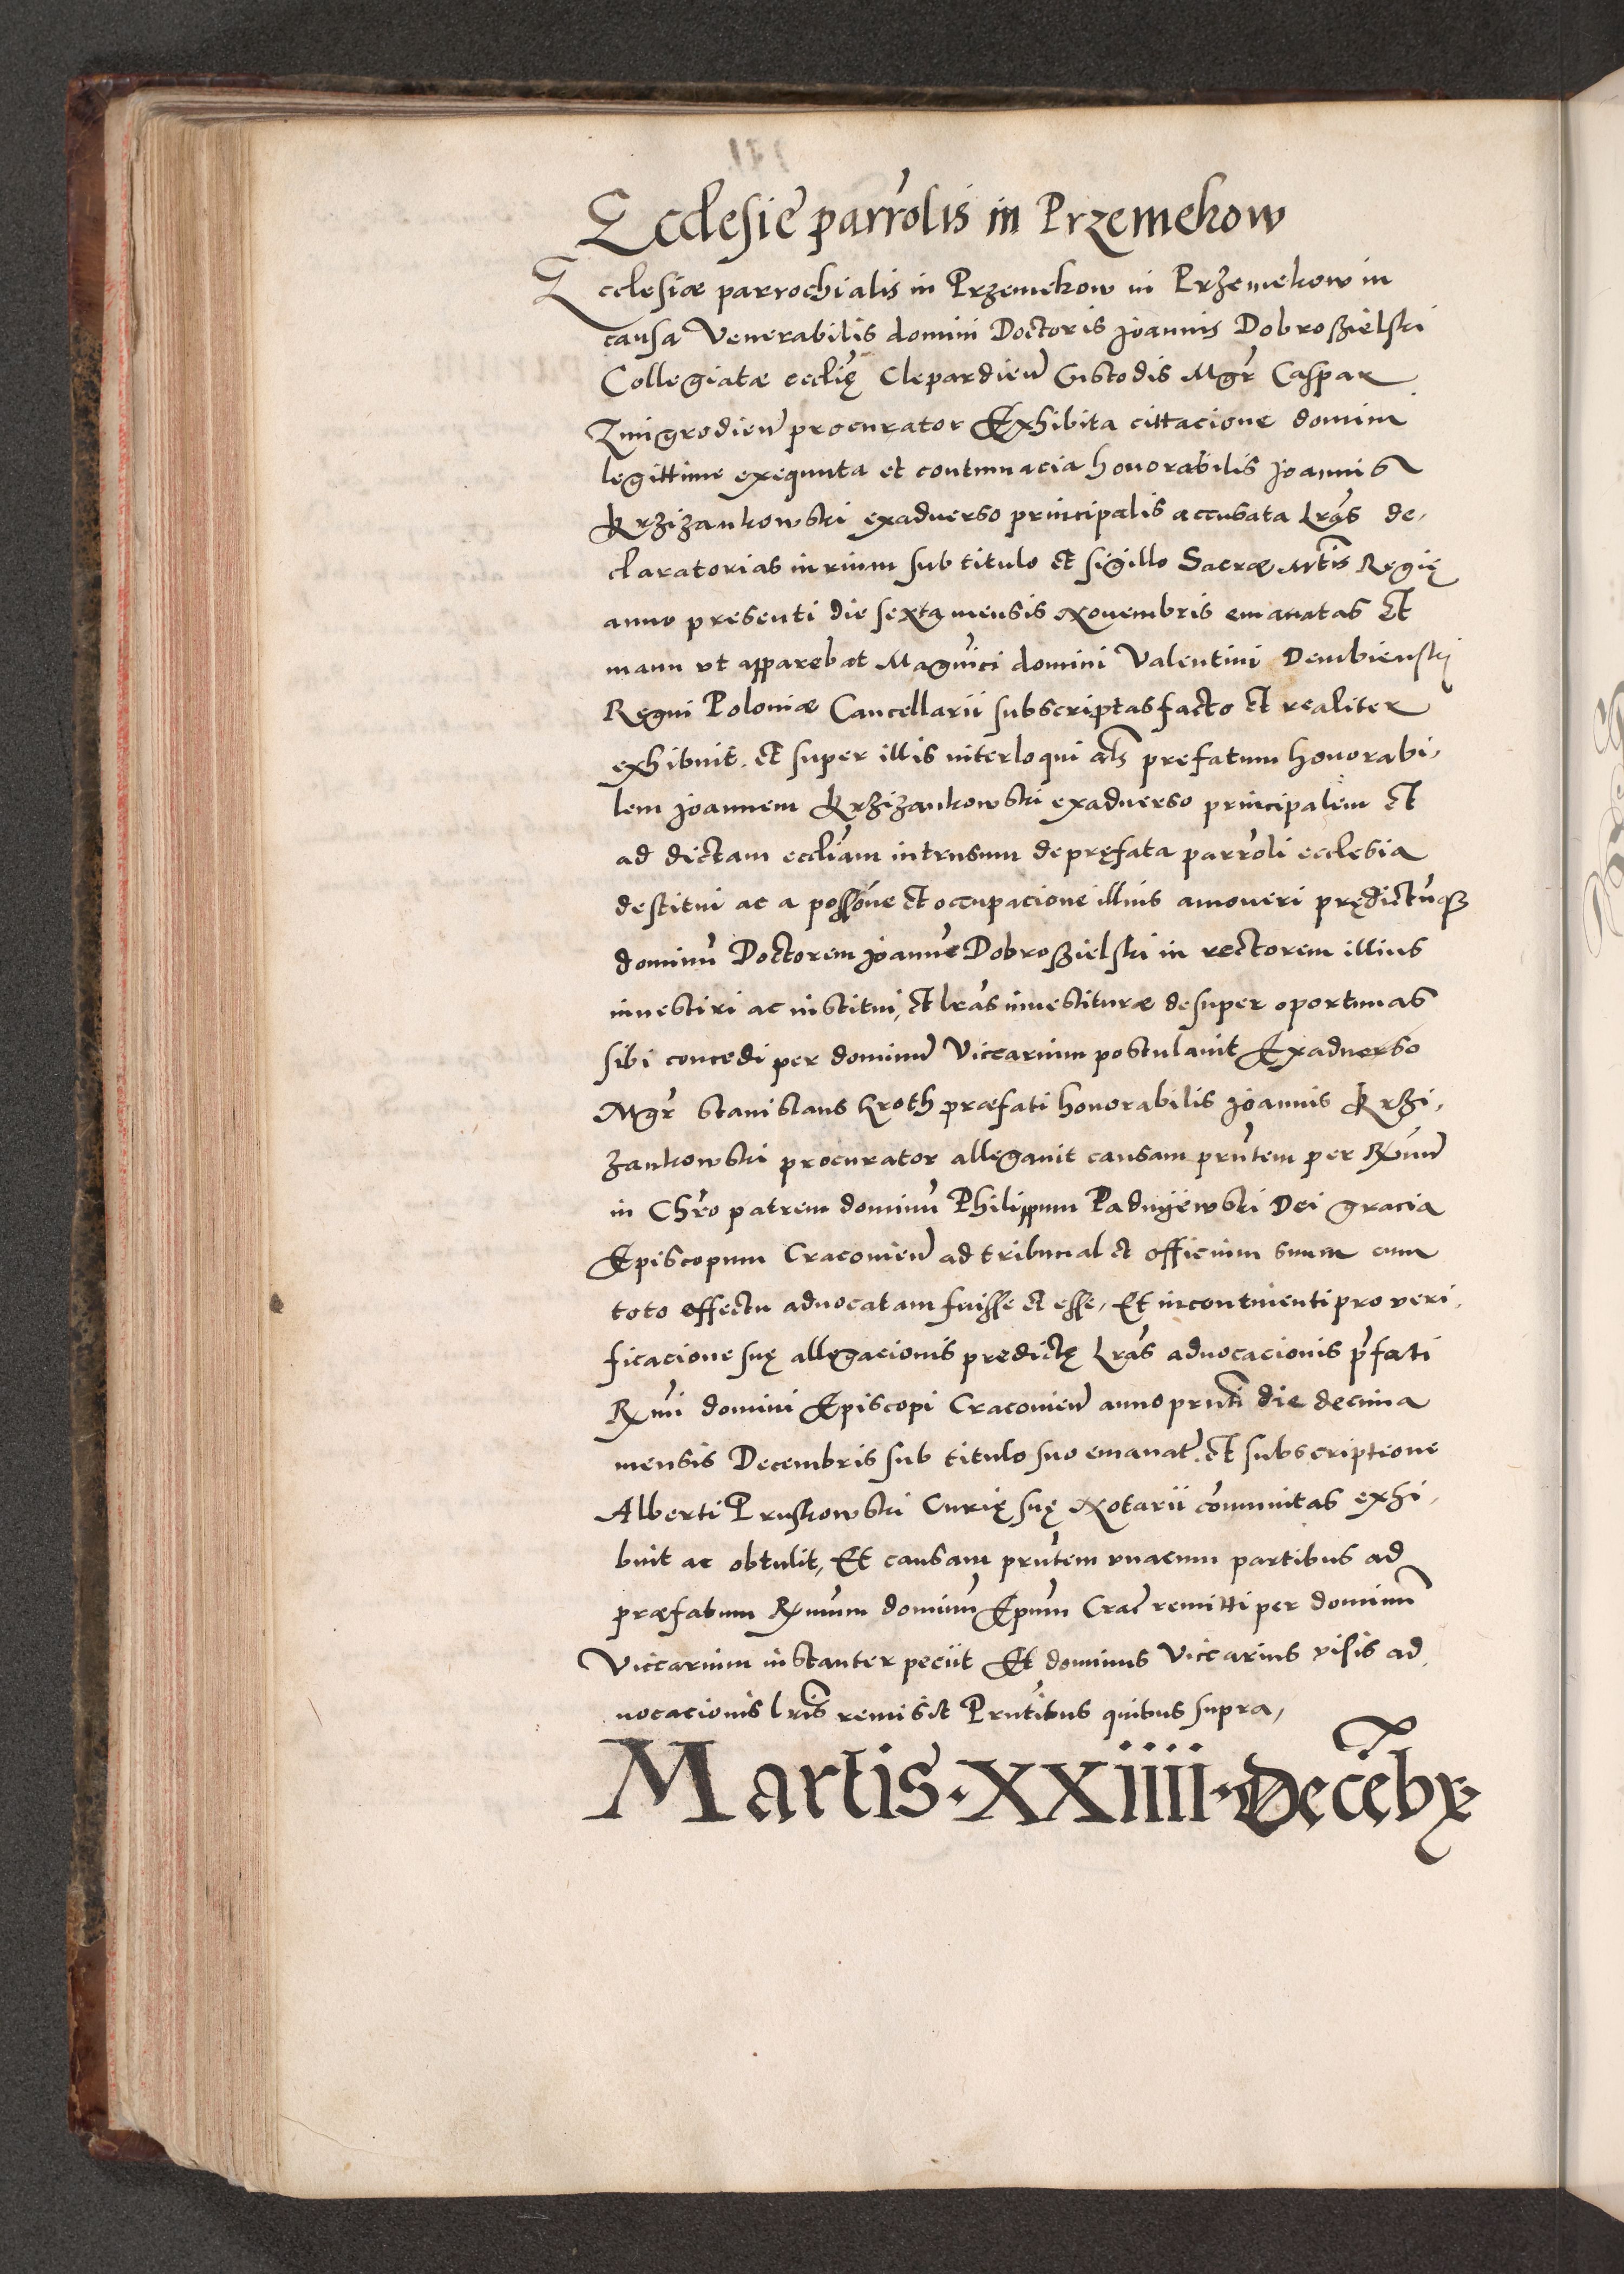 Ecclesie parr'olis in Przemekow
Ecclesiæ parrochialis in Przemekow in Przemekow in
causa Venerabilis domini Doctoris Joannis Dobroßielski
Collegiatæ eccl'ię Clepardien' Custodis Mgr' Caspar
Zmigrodien' procurator Exhibita cittacione domini
legittime exequuta et contumacia honorabilis Joannis
Krzizankowski exaduerso principalis accusata Lr'as de,
claratorias in rium sub titulo et sigillo Sacræ Mtis Regię
anno presenti die sexta mensis Nouembris emanatas et
manu vt apparebat Magnifici domini Valentini Dembienski
Regni Poloniæ Cancellarii subscriptas facto et realiter
exhibuit. et super illis interloqui al's prefatum honorabi,
lem Joannem Krzizankowski exaduerso principalem et
ad dictam eccl'iam intrusum de pręfata parr'oli ecclesia
destitui ac a poss'one et occupacione illius amoueri prędictu'q3
dominu' Doctorem Joanne' Dobroßielski in rectorem illius
inuestiri ac institui, et lr'as inuestituræ desuper oportunas
sibi concedi per dominu' Viccarium postulauit Exaduerso
Mgr' Stanislaus Kroth præfati honorabilis Joannis Krzi,
zankowski procurator allegauit causam prn'tem per R'mu'
in Chr'o patrem dominu' Philippum Padnijewski Dei gracia
Episcopum Cracouien' ad tribunal et officium suum cum
toto effectu aduocatam fuisse et esse, Et incontinenti pro veri,
ficacione suę allegacionis predictę Lr'as aduocacionis p'fati
R'mi domini Episcopi Cracouien' anno prn'ti die decima
mensis Decembris sub titulo suo emanat'. et subscriptione
Alberti Pruskowski Curię suę Notarii co'mmunitas exhi,
buit ac obtulit, Et causam prn'tem vnacum partibus ad
præfatum R'mum dominu' Ep'um Crac' remitti per dominu'
Viccarium instanter peciit Et dominus Viccarius visis ad,
uocacionis lr'is remisit Prn'tibus quibus supra,
Martis · XXIIII · Dece'bx